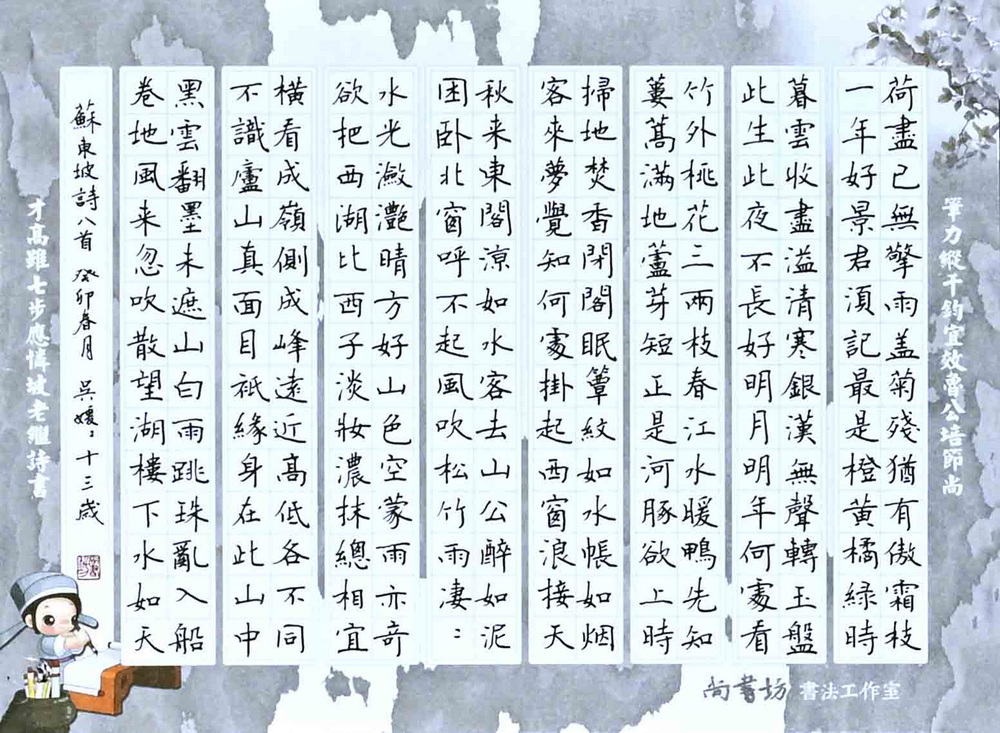 筆力縱千鈞宜效魯公培節尚
荷盡已無擎雨蓋菊殘猶有傲霜枝
一年好景君須記最是橙黃橘綠時
暮雲收盡溢清寒銀漢無聲轉玉盤
此生此夜不長好明月明年何處看
竹外桃花三兩枝春江水暖鴨先知
蔞蒿滿地蘆芽短正是河豚欲上時
掃地焚香閉閣眠簟紋如水帳如烟
客來夢覺知何處掛起西窗浪接天
秋来東閣涼如水客去山公醉如泥
困卧北窗呼不起風吹松竹雨凄:
水光瀲灩晴方好山色空蒙雨亦奇
欲把西湖比西子淡妝濃抹總相宜
橫看成嶺側成峰遠近高低各不同
不識廬山真面目祇緣身在此山中
黑雲翻墨未遮山白雨跳珠亂入船
卷地風来忽吹散望湖樓下水如天
蘇東坡詩八首 癸卯春月 吳媛: 十三歲
才高雖七步應憐坡老繼詩書
尚書坊 書法工作室